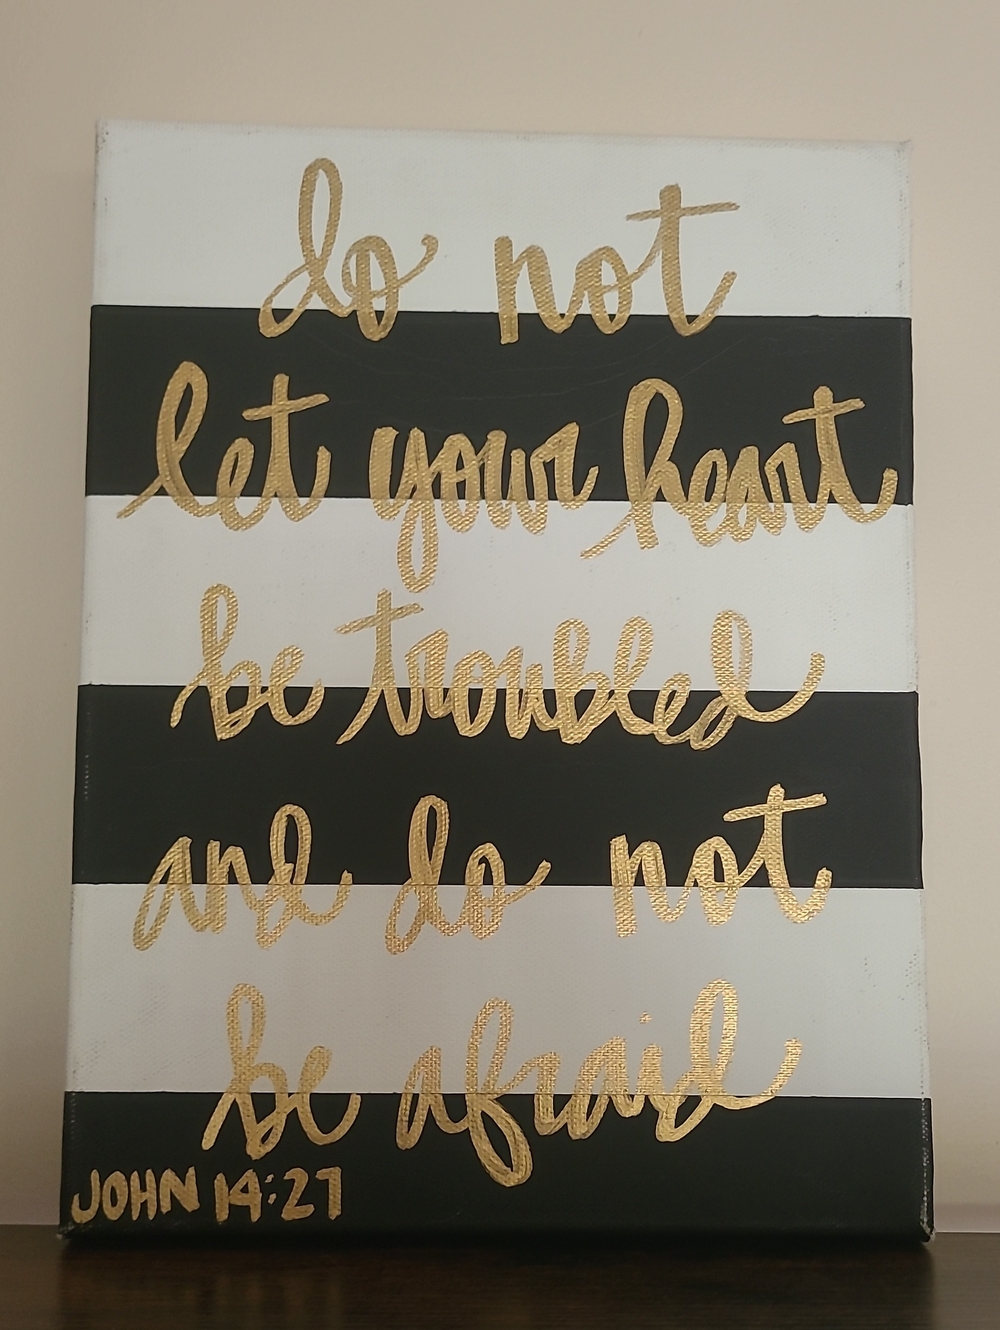 do not
let your heart
be troubled
and do not
be afraid
JOHN 14:27